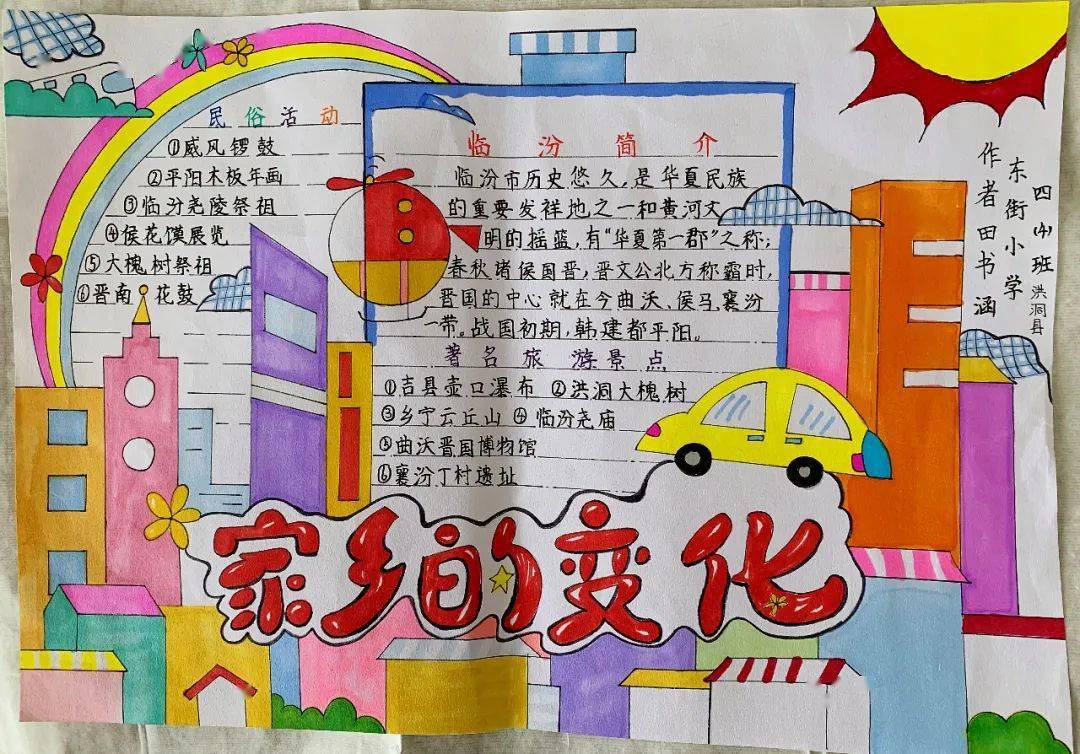 民俗活动
①威风锣鼓
②平阳木板年画
③临汾尧陵祭祖
④侯花馍展览
⑤大槐树祭祖
⑥晋南花鼓
临汾简介
临汾市历史悠久,是华夏民族
的重要发祥地之一和黄河文
明的摇篮,有“华夏第一郡”之称;
春秋诸侯国晋,晋文公北方称霸时,
晋国的中心就在今曲沃、侯马、襄汾
一带。战国初期,韩建都平阳。
著名旅游景点
①吉县壶口瀑布 ②洪洞大槐树
③乡宁云丘山 ④临汾尧庙
⑤曲沃晋国博物馆
⑥襄汾丁村遗址
四(4)班 洪洞县
东街小学
作者田书涵
家乡的变化